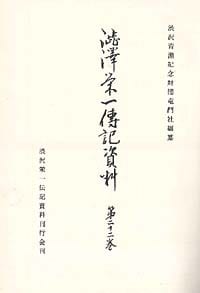 渋沢青淵記念財団竜門社編纂
澁澤栄一傳記資料
第二十二巻
渋沢栄一伝記資料刊行会刊